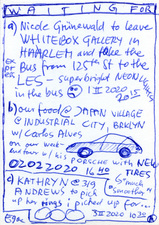 WAITING FOR
a) Nicole Grünewald to leave
WHITEBOX GALLERY in
HAARLEM and take the
Bus from 125st St to the
LES – superbright NEON LIGHTS
in the bus @ 1 II 2020
20:15
b) our food @ JAPAN VILLAGE
@ INDUSTRIAL CITY, BRKLYN
w/ Carlos Alves
on our week-
end tour w/ his PORSCHE with NEW
TIRES
02022020 16:40
"much
smoother"
c) KATHRYN @ 319
ANDREWS to pick
up her rings i picked up for...
3 II 2020 10:20